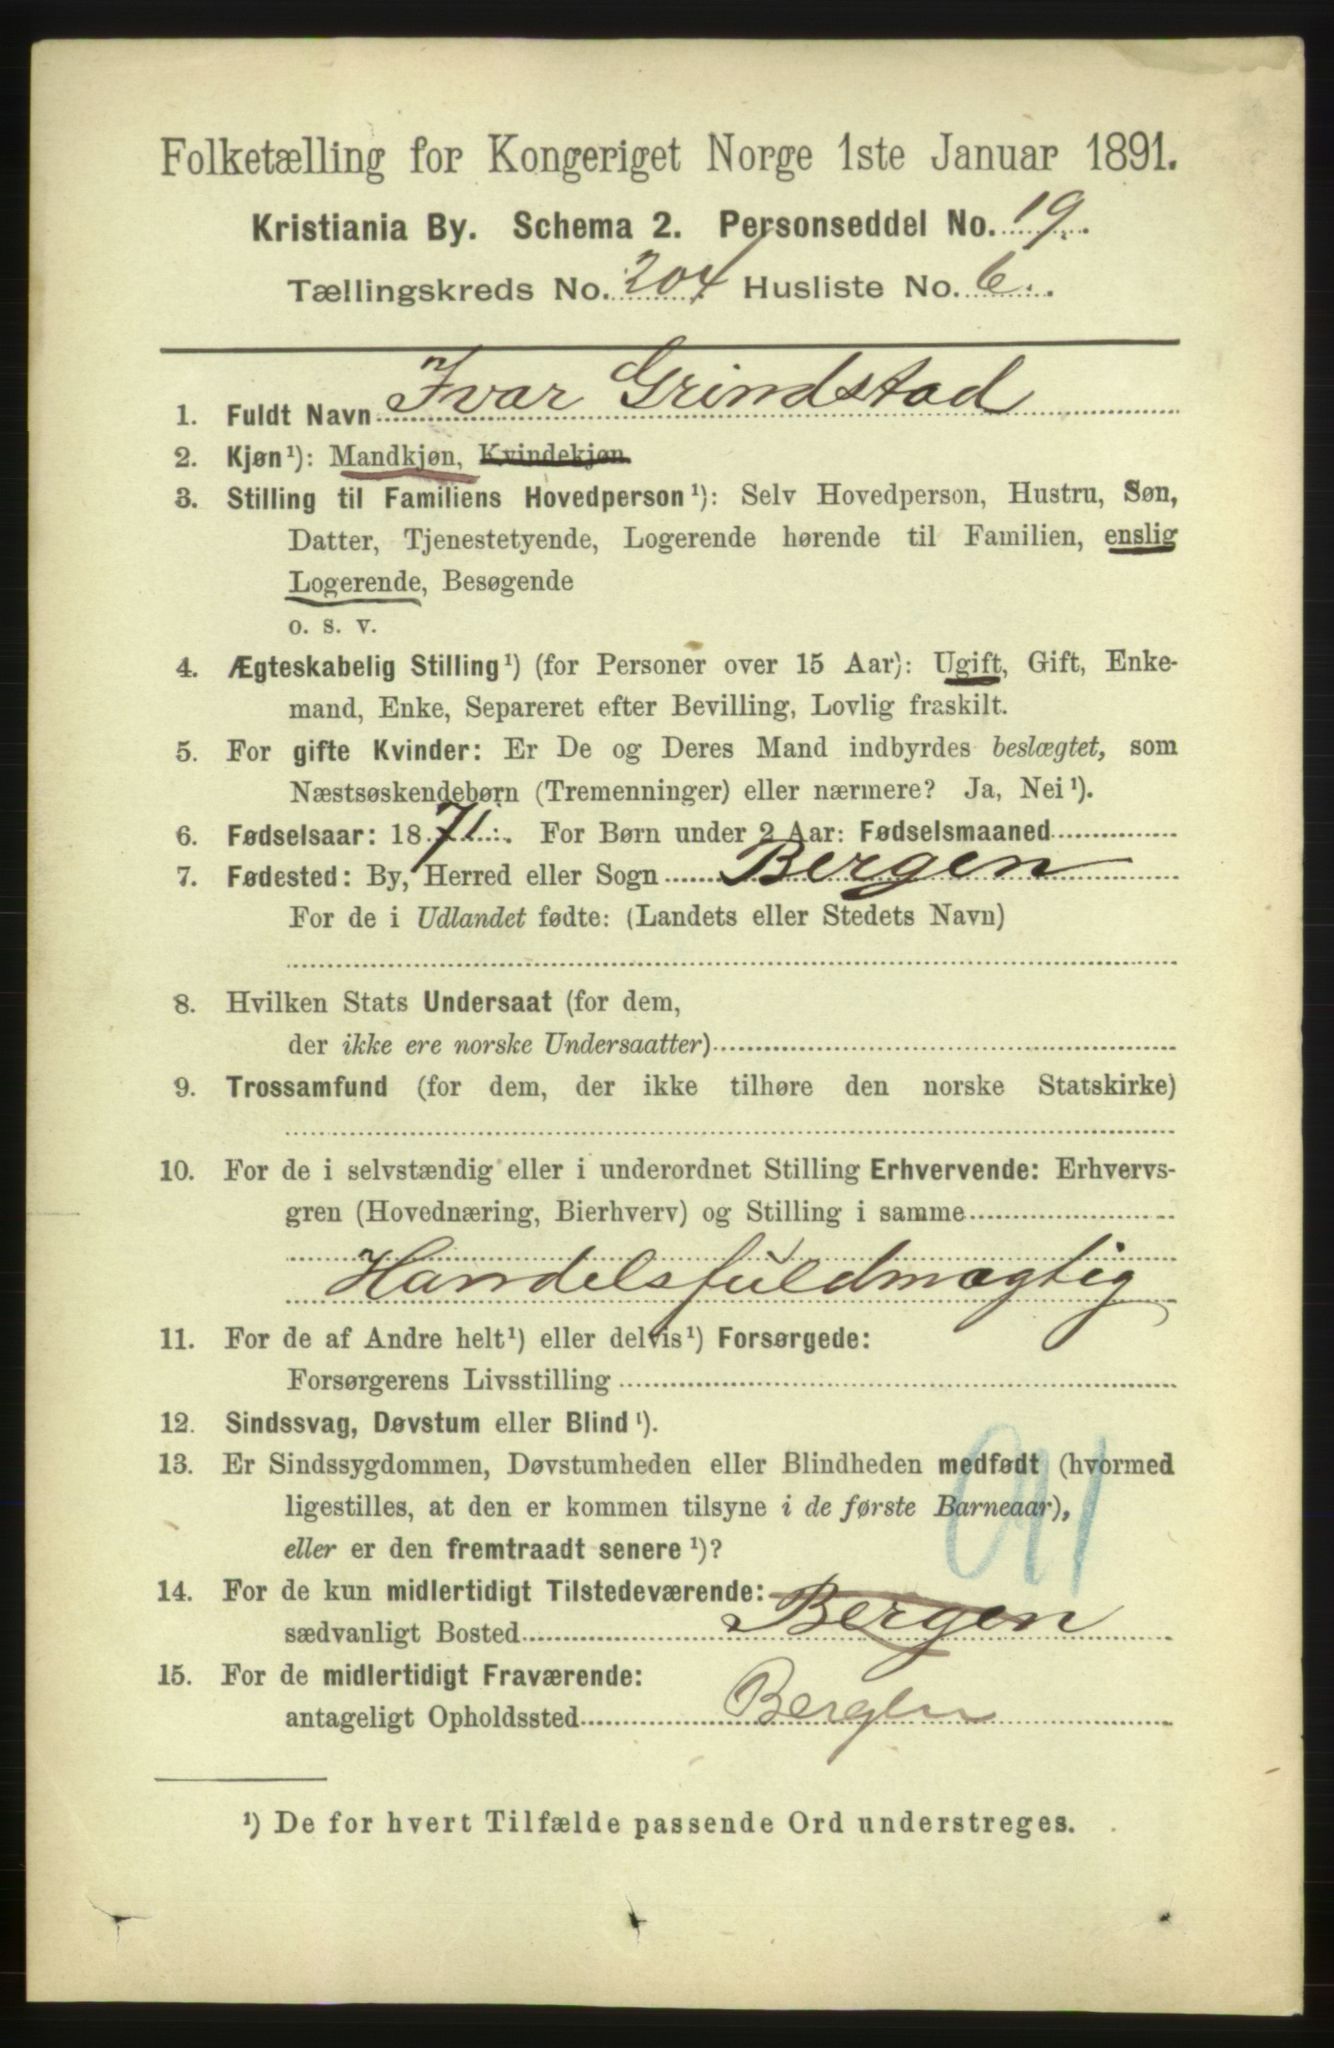 Folketælling for Kongeriget Norge 1ste Januar 1891.
Kristiania By. Schema 2. Personseddel No. 19.
Tællingskreds No. 204 Husliste No. 6.
1. Fuldt Navn Ivar Grindstad
2. Kjøn¹): Mandkjøn, Kvindekjøn
3. Stilling til Familiens Hovedperson¹): Selv Hovedperson, Hustru, Søn,
Datter, Tjenestetyende, Logerende hørende til Familien, enslig
Logerende, Besøgende
o. s. v.
4. Ægteskabelig Stilling¹) (for Personer over 15 Aar): Ugift, Gift, Enke-
mand, Enke, Separeret efter Bevilling, Lovlig fraskilt.
5. For gifte Kvinder: Er De og Deres Mand indbyrdes beslægtet, som
Næstsøskendebørn (Tremenninger) eller nærmere? Ja, Nei¹).
6. Fødselsaar: 1871. For Børn under 2 Aar: Fødselsmaaned
7. Fødested: By, Herred eller Sogn Bergen
For de i Udlandet fødte: (Landets eller Stedets Navn)
8. Hvilken Stats Undersaat (for dem,
der ikke ere norske Undersaatter)
9. Trossamfund (for dem, der ikke tilhøre den norske Statskirke)
10. For de i selvstændig eller i underordnet Stilling Erhvervende: Erhvervs-
gren (Hovednæring, Bierhverv) og Stilling i samme
Handelsfuldmægtig
11. For de af Andre helt¹) eller delvis¹) Forsørgede:
Forsørgerens Livsstilling
12. Sindssvag, Døvstum eller Blind¹).
13. Er Sindssygdommen, Døvstumheden eller Blindheden medfødt (hvormed
ligestilles, at den er kommen tilsyne i de første Barneaar),
eller er den fremtraadt senere¹)?
14. For de kun midlertidigt Tilstedeværende:
sædvanligt Bosted Bergen
15. For de midlertidigt Fraværende:
antageligt Opholdssted Bergen
¹) De for hvert Tilfælde passende Ord understreges.